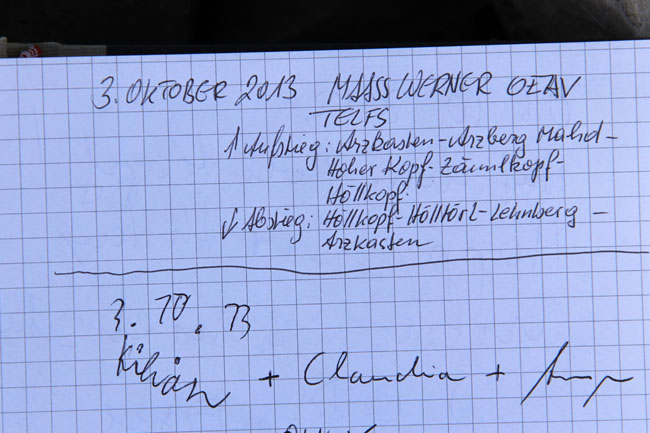 3. OKTOBER 2013 MAASS WERNER OLAV
TELFS
↑ Aufstieg: Arzkasten-Arzberg Mahd-
Hoher Kopf-Zäundlkopf-
Höllkopf.
↓ Abstieg: Höllkopf-Hölltörl-Lehnberg-
Arzkasten
3. 10. 13
Kilian + Claudia +